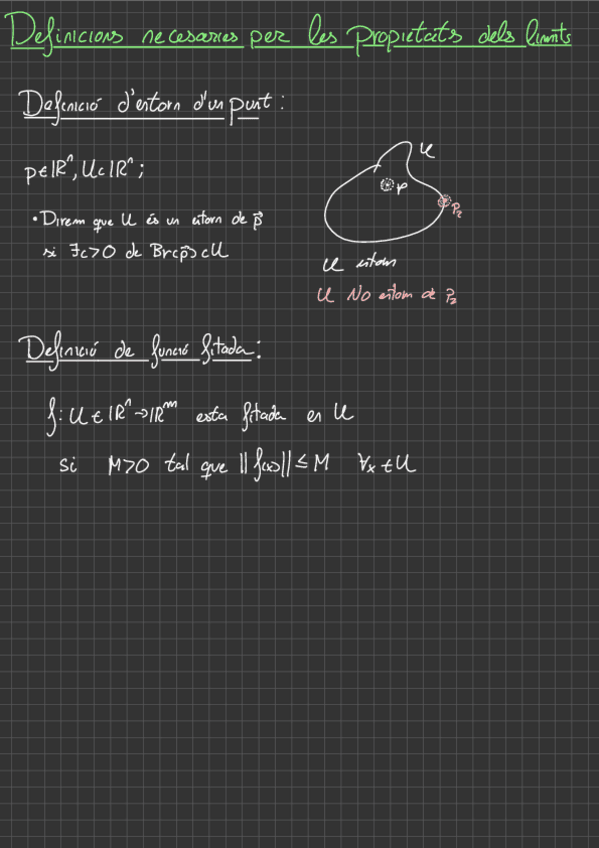 Definicions necesaries per les Propietats dels límits
Definició d'entorn d'un punt:
p∈ℝⁿ, U⊂ℝⁿ;
• Direm que U és un entorn de p⃗
si ∃r>0 de Br(p⃗)⊂U
U
p
P₂
U entorn
U No entorn de P₂
Definició de funció fitada:
f: U∈ℝⁿ→ℝᵐ esta fitada en U
si M>0 tal que ||f(x)|| ≤ M ∀x∈U